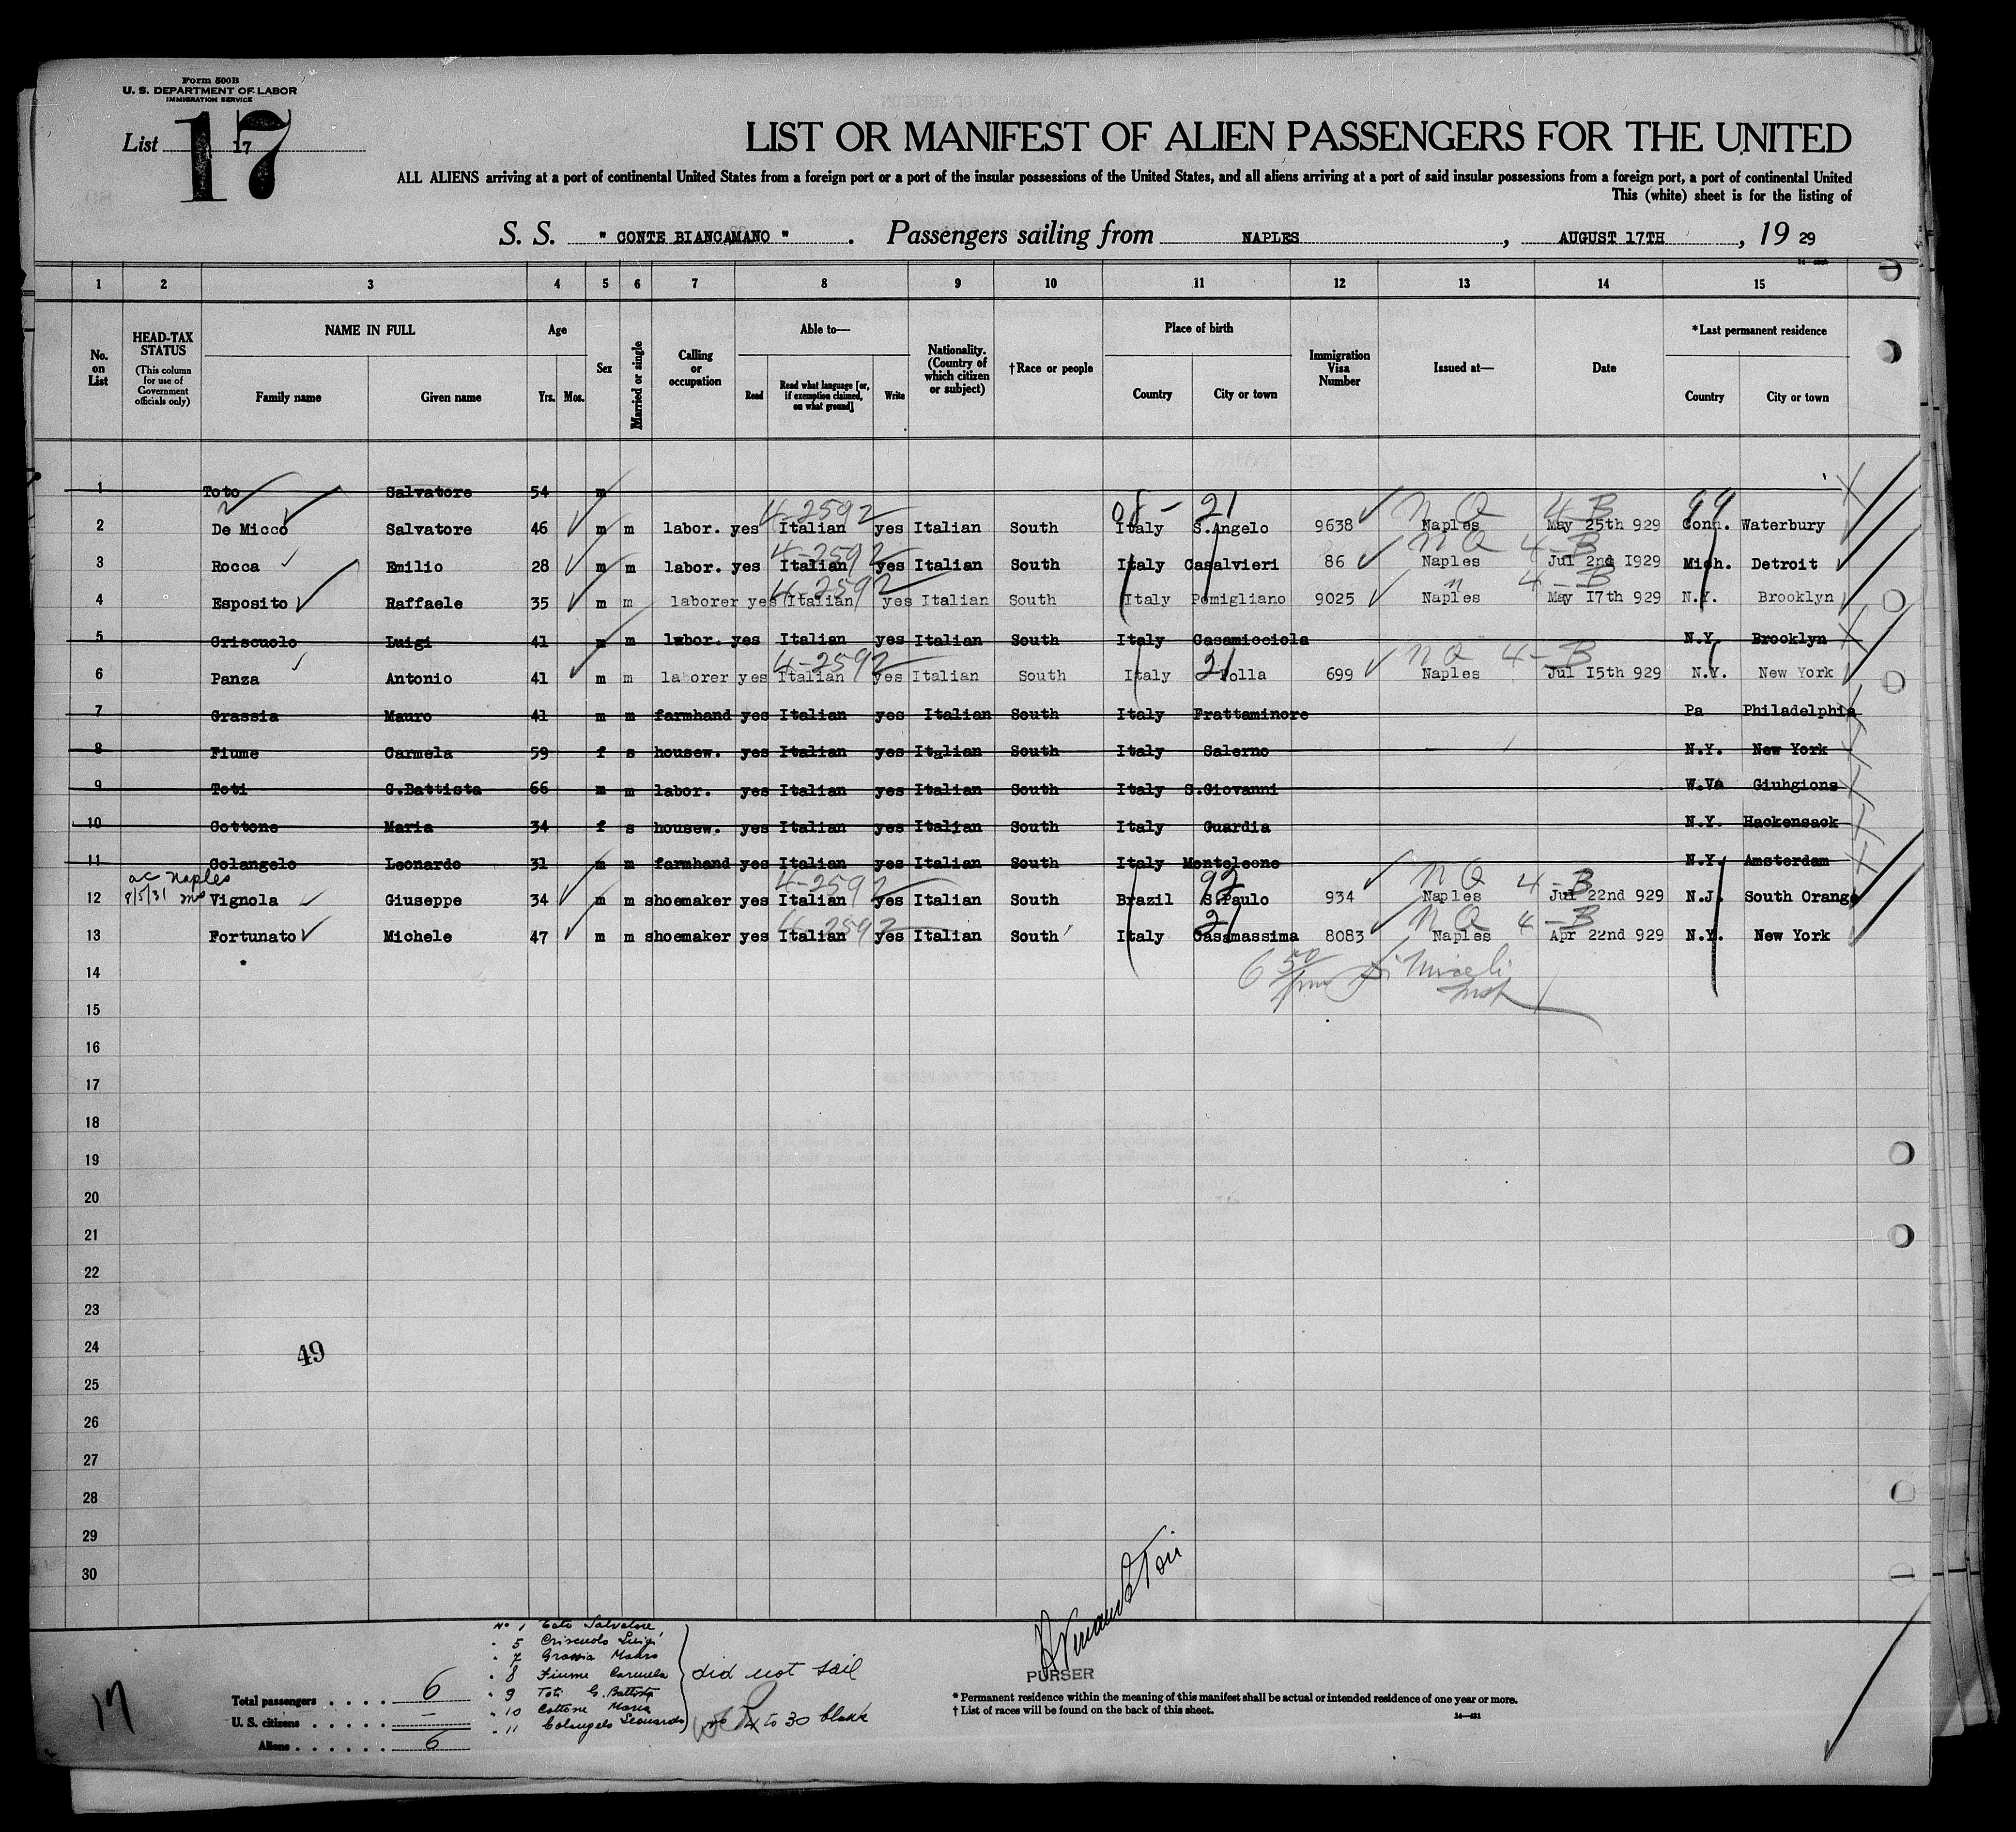 Form 500B
U. S. DEPARTMENT OF LABOR
IMMIGRATION SERVICE
List 17
17
LIST OR MANIFEST OF ALIEN PASSENGERS FOR THE UNITED
ALL ALIENS arriving at a port of continental United States from a foreign port or a port of the insular possessions of the United States, and all aliens arriving at a port of said insular possessions from a foreign port, a port of continental United
This (white) sheet is for the listing of
S. S. " CONTE BIANCAMANO " . Passengers sailing from NAPLES , AUGUST 17TH , 19 29
1 2 3 4 5 6 7 8 9 10 11 12 13 14 15
No. on List
HEAD-TAX STATUS (This column for use of Government officials only)
NAME IN FULL
Family name Given name
Age
Yrs. Mos.
Sex
Married or single
Calling or occupation
Able to—
Read Read what language [or, if exemption claimed, on what ground] Write
Nationality. (Country of which citizen or subject)
†Race or people
Place of birth
Country City or town
Immigration Visa Number
Issued at—
Date
*Last permanent residence
Country City or town
1 Toto Salvatore 54 m
4-2592 08 - 21 N Q 4-B 99
2 De Micco Salvatore 46 m m labor. yes Italian yes Italian South Italy S.Angelo 9638 Naples May 25th 929 Conn. Waterbury
4-2592 N Q 4-B
3 Rocca Emilio 28 m m labor. yes Italian yes Italian South Italy Casalvieri 86 Naples Jul 2nd 1929 Mich. Detroit
4-2592 n 4-B
4 Esposito Raffaele 35 m m laborer yes Italian yes Italian South Italy Pomigliano 9025 Naples May 17th 929 N.Y. Brooklyn
5 Criscuolo Luigi 41 m m labor. yes Italian yes Italian South Italy Casamicciola N.Y. Brooklyn
4-2592 21 N Q 4-B
6 Panza Antonio 41 m m laborer yes Italian yes Italian South Italy Tolla 699 Naples Jul 15th 929 N.Y. New York
7 Grassia Mauro 41 m m farmhand yes Italian yes Italian South Italy Frattaminore Pa Philadelphia
8 Fiume Carmela 59 f s housew. yes Italian yes Italian South Italy Salerno N.Y. New York
9 Toti G.Battista 66 m m labor. yes Italian yes Italian South Italy S.Giovanni W.Va Giuhgions
10 Cottone Maria 34 f s housew. yes Italian yes Italian South Italy Guardia N.Y. Hackensack
11 Colangelo Leonardo 31 m m farmhand yes Italian yes Italian South Italy Monteleone N.Y. Amsterdam
ac Naples
8/5/31
4-2592 92 N Q 4-B
12 Vignola Giuseppe 34 m m shoemaker yes Italian yes Italian South Brazil S.Paulo 934 Naples Jul 22nd 929 N.J. South Orange
4-2592 21 N Q 4-B
13 Fortunato Michele 47 m m shoemaker yes Italian yes Italian South Italy Casamassima 8083 Naples Apr 22nd 929 N.Y. New York
14
15
16
17
18
19
20
21
22
23
24
49
25
26
27
28
29
30
No 1 Toto Salvatore
" 5 Criscuolo Luigi
" 7 Grassia Mauro
" 8 Fiume Carmela
" 9 Toti G. Battista
" 10 Cottone Maria
" 11 Colangelo Leonardo
did not sail
14 to 30 blank
17
Total passengers . . . . 6
U. S. citizens . . . . . —
Aliens . . . . . . 6
PURSER
* Permanent residence within the meaning of this manifest shall be actual or intended residence of one year or more.
† List of races will be found on the back of this sheet.